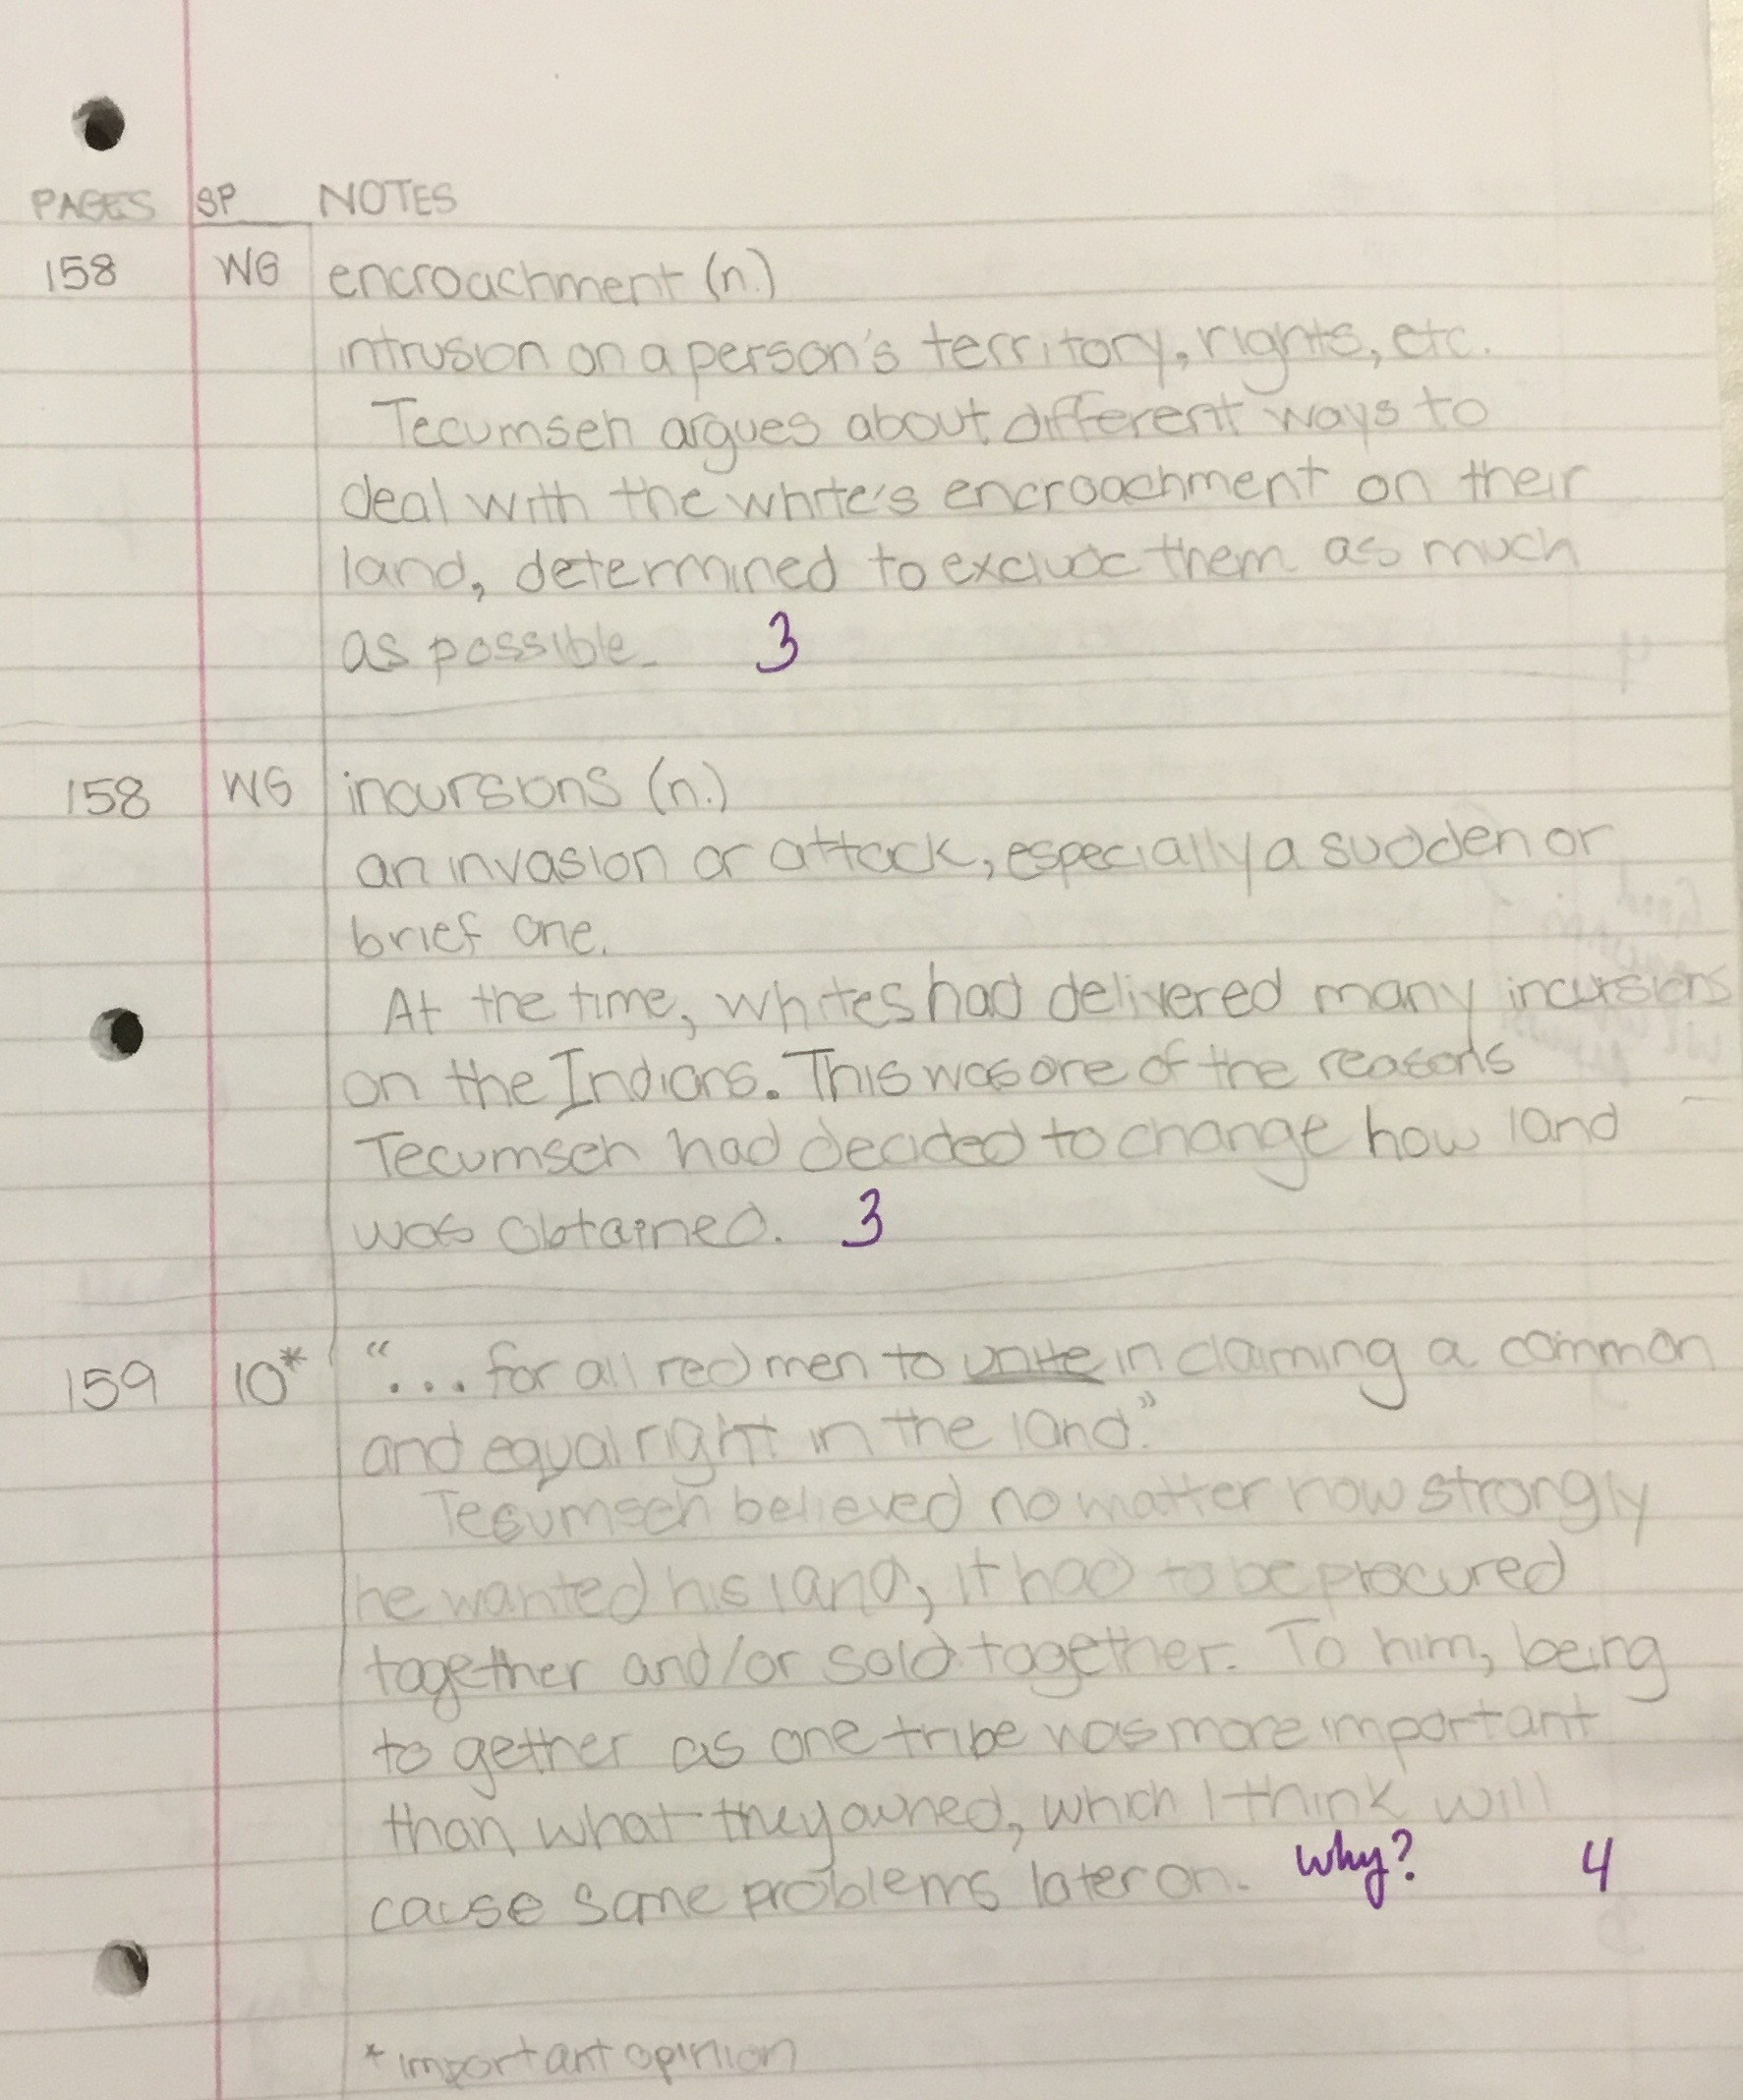 PAGES SP NOTES
158 WG encroachment (n.)
intrusion on a person's territory, rights, etc.
Tecumseh argues about different ways to
deal with the white's encroachment on their
land, determined to exclude them as much
as possible. 3
158 WG incursions (n.)
an invasion or attack, especially a sudden or
brief one.
At the time, whites had delivered many incursions
on the Indians. This was one of the reasons
Tecumseh had decided to change how land
was obtained. 3
159 10* "... for all red men to unite in claiming a common
and equal right in the land."
Tecumseh believed no matter how strongly
he wanted his land, it had to be procured
together and/or sold together. To him, being
together as one tribe was more important
than what they owned, which I think will
cause some problems later on. why? 4
* important opinion